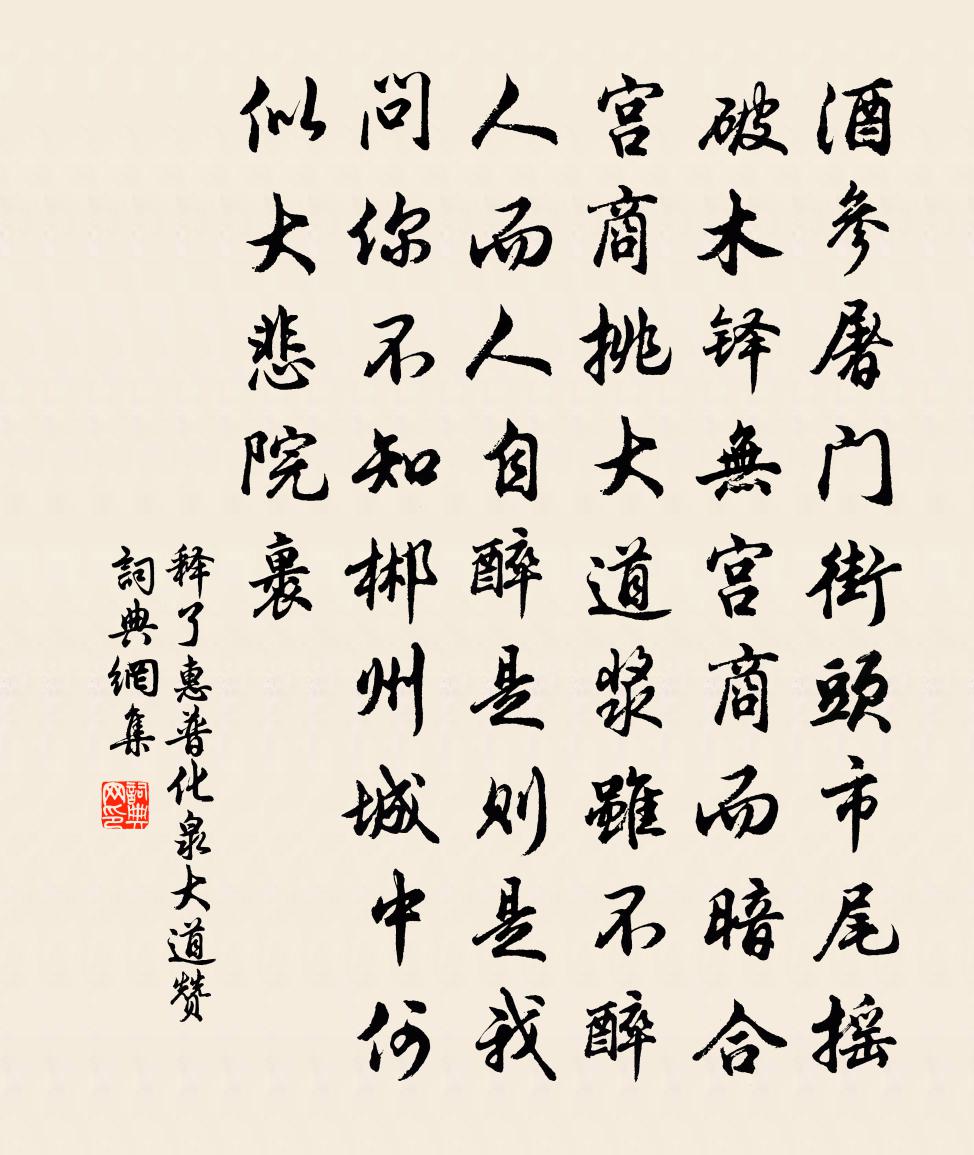 酒參屠门街頭市尾摇
破木铎無宫商而暗合
宫商挑大道漿雖不醉
人而人自醉是則是我
問你不知郴州城中何
似大悲院裹
释了惠普化泉大道赞
詞典網集
詞典网印